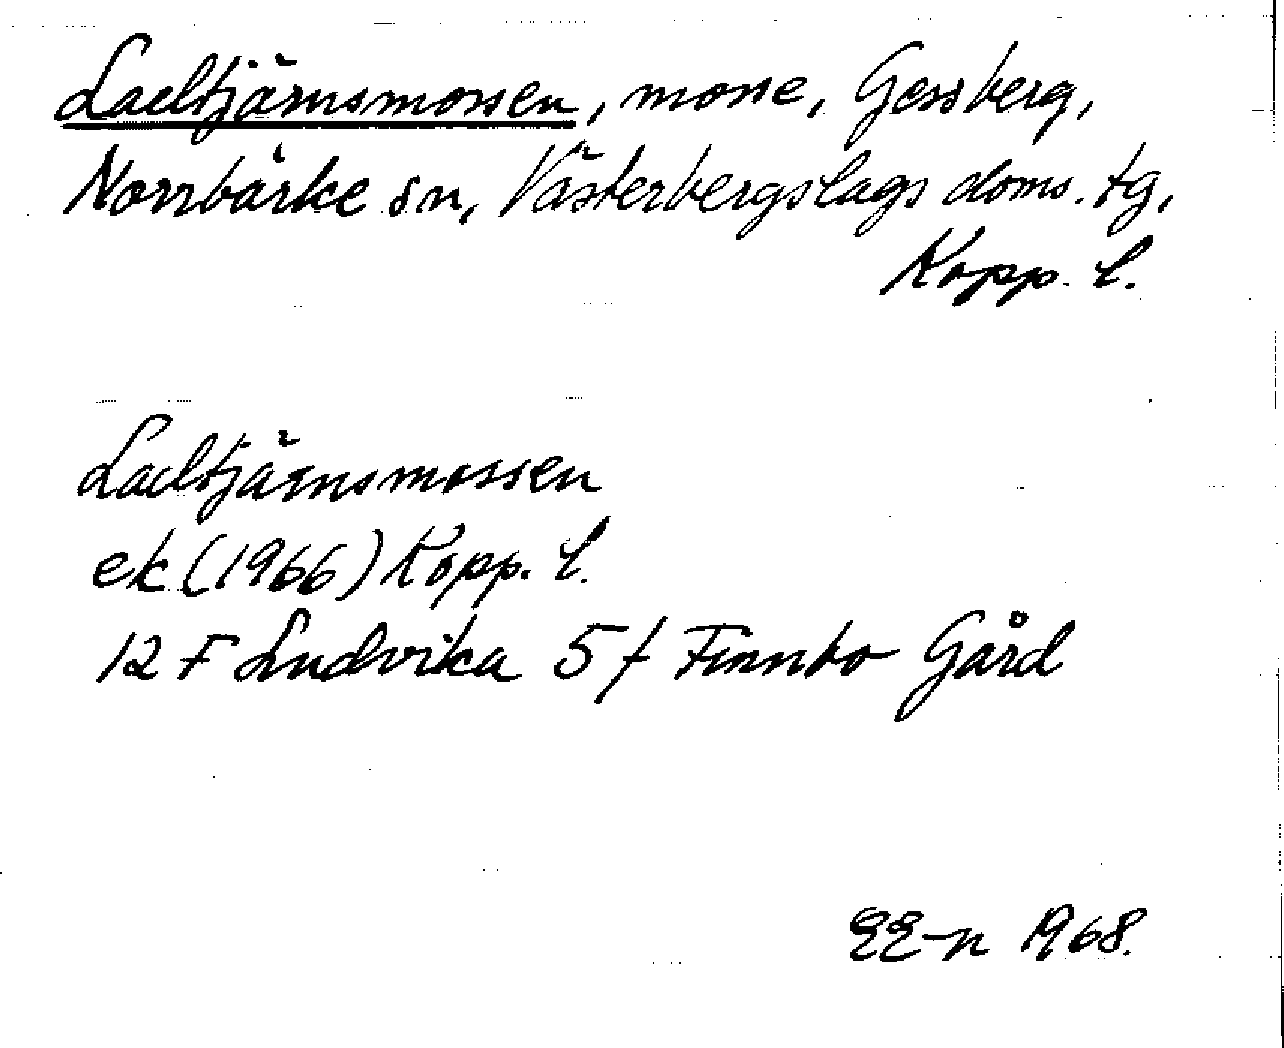 Ladtjärnsmossen, mosse, Gessberg,
Norrbärke sn, Västerbergslags doms. tg,
Kopp. l.
Ladtjärnsmossen
ek (1966) Kopp. l.
12 F Ludvika 5 f Finnbo Gård
EE-n 1968.